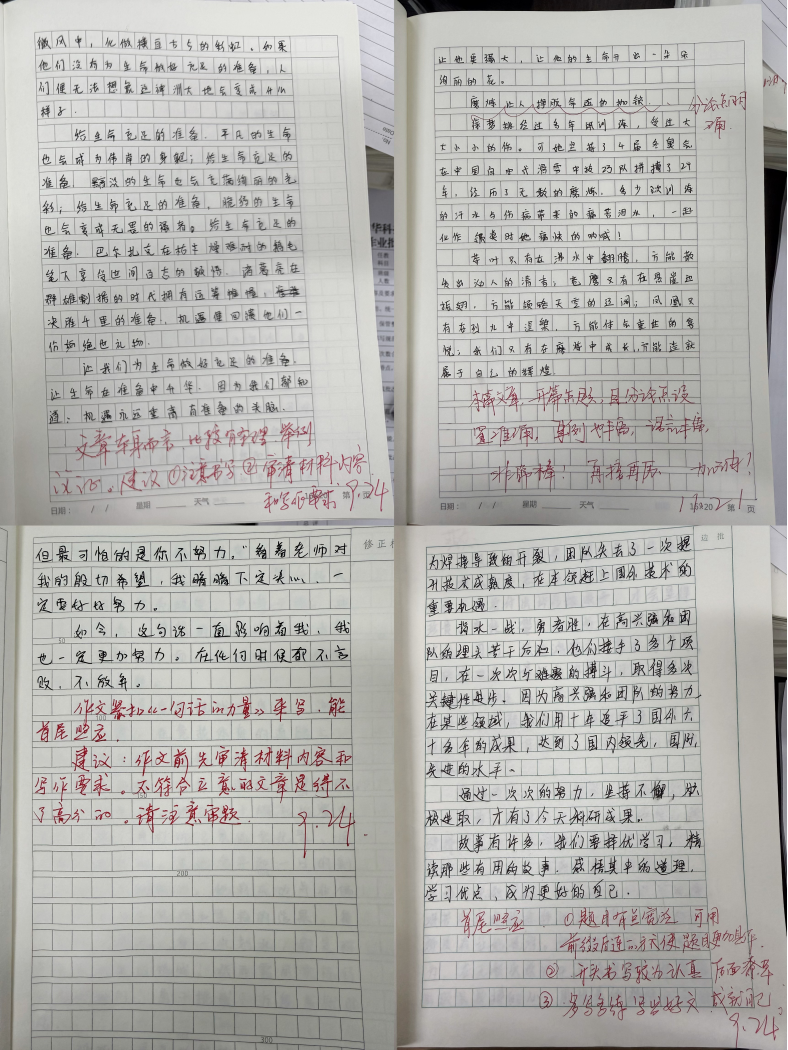 微风中，化做横亘古今的彩虹。如果
他们没有为生命做好充足的准备，人
们便无法想象这神州大地会变成什么
样子。
给生命充足的准备，平凡的生命
也会成为伟岸的身躯；给生命充足的
准备，黯淡的生命也会充满绚丽的色
彩；给生命充足的准备，脆弱的生命
也会变成无畏的强者。给生命充足的
准备，巴尔扎克在
笔下享受世间百态的
群雄割据的时代拥有运筹帷幄，
决胜千里的准备，机遇便回馈他们一
份
让我们为生命做好充足的准备，
让生命在准备中升华，因为我们都知
道：机遇永远垂青有准备的头脑。
文章车身而言，比较有条理，举例
论证。建议①注意书写②审清材料内容
和写作要求 9.24
日期： / / 星期 天气 第 页
让他更强大，让他的生命开出一朵朵
绚丽的花。
磨炼让人挣脱命运的枷锁
分论点明
确
徐梦桃经过多年的训练，受过大
大小小的伤。可她坚持了4届冬奥会
在中国自由式滑雪空中技巧队拼搏了27
年，经历了无数的磨炼，多少次训练
的汗水与伤病带来的痛苦泪水，一起
化作领奖时他痛快的呐喊！
茶叶只有在沸水中翻腾，方能散
发出动人的清香；苍鹰只有在悬崖边
振翅，方能领略天空的辽阔；凤凰只
有在烈火中涅槃，方能体会重生的喜
悦；我们只有在磨炼中成长，方能造就
属于自己的辉煌
本篇文章，开篇点题，且分论点设
置准确，事例也丰富，语言丰富，
非常棒！再接再厉 加油！
日期： / / 星期 天气 第 页
但最可怕的是你不努力。”看着老师对
我的殷切希望，我暗暗下定决心，一
定要好好努力。
如今，这句话一直影响着我，我
也一定更加努力。在任何时候都不言
败，不放弃。
作文紧扣《一句话的力量》来写，能
首尾照应。
建议：作文前先审清材料内容和
写作要求。不符合立意的文章是得不
了高分的。请注意审题
9.24
200
300
为焊接导致的开裂，团队失去了一次提
升技术成熟度，在本领赶上国外技术的
重要机遇。
背水一战，勇者胜，在高兴强和团
队的埋头苦干后和，他们接手了多个项
目，在一次次艰难的搏斗，取得多次
关键性进步。因为高兴强和团队的努力
在某些领域，我们用十年追平了国外六
十多年的成果，达到了国内领先，国际
先进的水平。
通过一次次的努力，坚持不懈，积
极进取，才有了今天科研成果。
故事有许多，我们要择优学习，精
读那些有用的故事，感悟其中的道理，
学习优点，成为更好的自己。
首尾照应 ①题目有点宽泛 可用
前缀后连的方式使题目更加具体
② 开头书写较为认真 后面潦草
③ 多写多练 写些好文 成就自己。
9.24